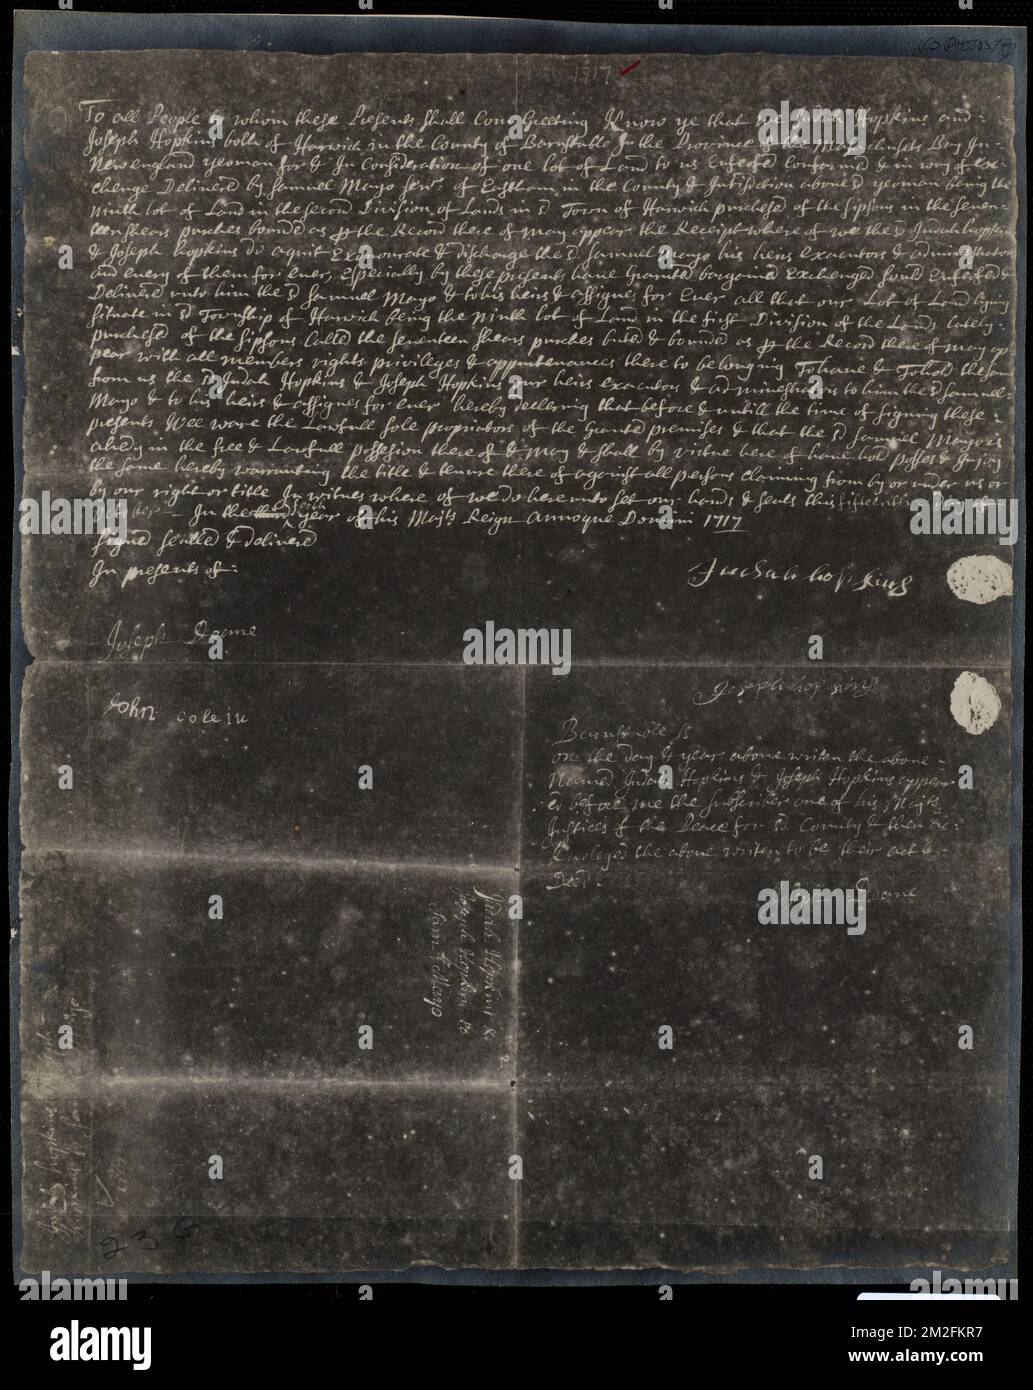 NO PHOTOSTAT
1717
To all People to whom these Presents shall Come Greeting Know ye that we Judah Hopkins and
Joseph Hopkins both of Harwich in the County of Barnstable In the Province of the Massachusets Bay In
Newengland yeoman for & In Consideration of one lot of Land to us Enfeofed Confirmed & in way of ex-
change Delivered by Samuel Mayo senr. of Eastham in the County & Jurisdiction aboues'd yeoman being the
ninth lot of Land in the second Division of Lands in s'd Town of Harwich purchesed of the sipsons in the seven-
teen shears purches bounded as pr the Record there of may appear the Receipt where of we the s'd Judah hopkins
& Joseph hopkins do aquit Exonourate & discharge the s'd Samuel Mayo his heirs executors & administrators
and euery of them for Euer, Especially by these presents haue Granted bargained Exchenged sould Enfeofed &
Deliured unto him the s'd Samuel Mayo & to his heirs & assignes for Euer all that our Lot of Land lying
situate in s'd Township of Harwich being the ninth lot of Land in the first Division of the Lands lately-
purchesed of the sipsons Called the seventeen shears purches buted & bounded as pr the Record there of may ap
pear with all members rights privileges & appurtenances there to belonging To haue & To hold the same
from us the s'd Judah Hopkins & Joseph Hopkins our heirs executors & administrators to him the s'd Samuel
Mayo & to his heirs & assignes for euer hereby declering that before & untill the time of signing these
presents Wee ware the Lawfull sole propriators of the Granted premises & that the s'd Samuel Mayo is
alredy in the free & Lawfull possession there of & may & shall by virtue here of haue hold posses & Injoy
the same hereby warranting the title & tenure there of against all persons claiming from by or under us or
by our right or title In witnes where of we do here unto set our hands & seals this fifteenth Day of
In the year of his Majts Reign Annoque Domini 1717
signed sealled & delivered
In presents of:
Judah hopkins
Joseph Doane
Joseph hopkins
John Cole iu
Barnstable ss
on the day & year aboue writen the aboue-
Named Judah Hopkins & Joseph Hopkins appear
ed before me the subscriber one of his Majts
Justices of the Peace for s'd County & then ac-
knoleged the aboue writen to be their act &
Deed:
Joseph Doane
Judah Hopkins &
Joseph Hopkins to
Sam'll Mayo
2
236
alamy
Image ID: 2M2FKR7
www.alamy.com